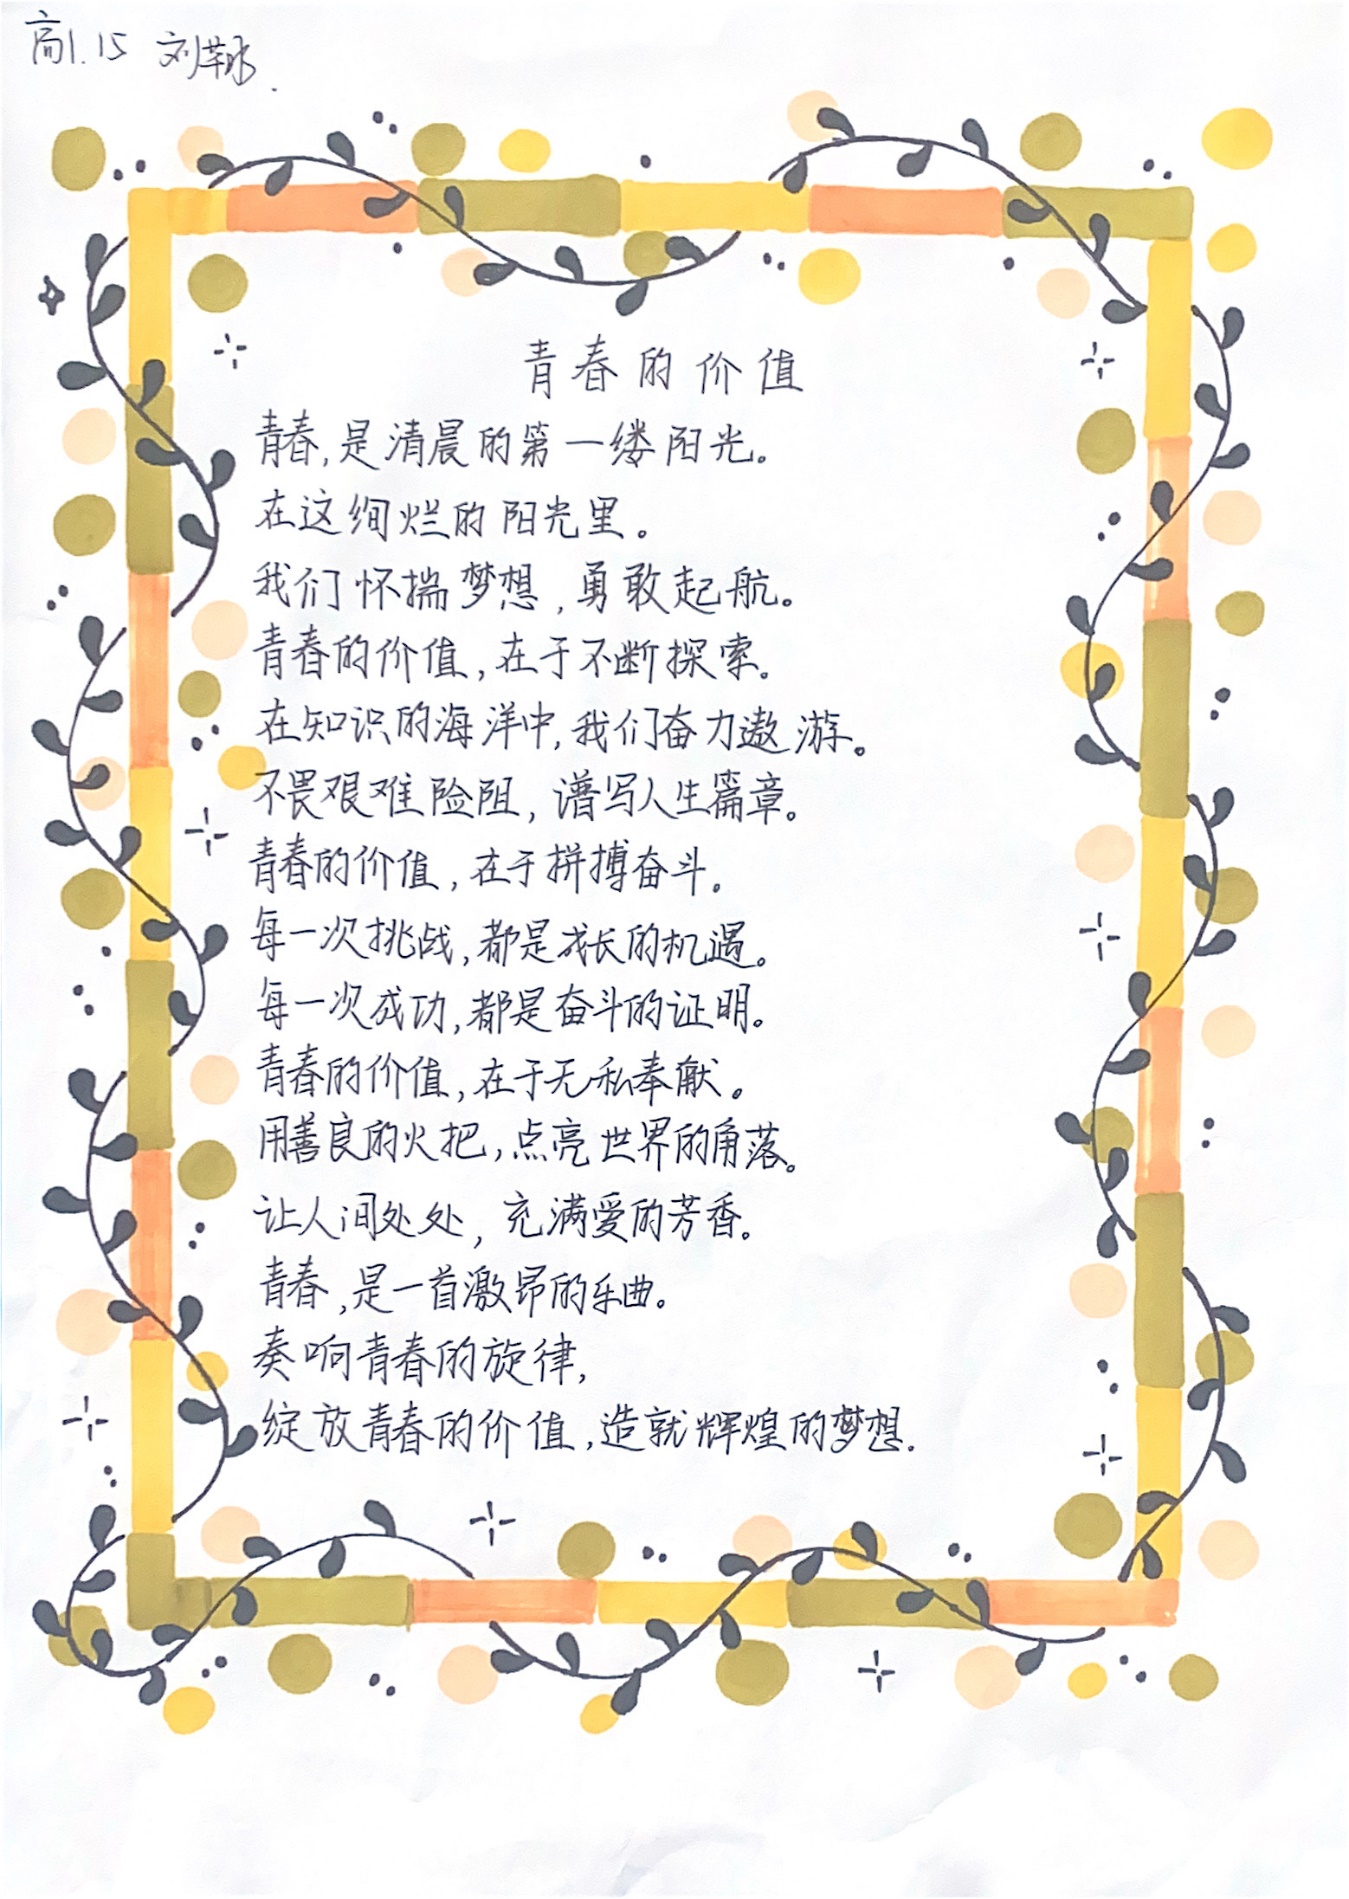 高1.15 刘
青春的价值
青春,是清晨的第一缕阳光。
在这绚烂的阳光里。
我们怀揣梦想,勇敢起航。
青春的价值,在于不断探索。
在知识的海洋中,我们奋力遨游。
不畏艰难险阻,谱写人生篇章。
青春的价值,在于拼搏奋斗。
每一次挑战,都是成长的机遇。
每一次成功,都是奋斗的证明。
青春的价值,在于无私奉献。
用善良的火把,点亮世界的角落。
让人间处处,充满爱的芳香。
青春,是一首激昂的乐曲。
奏响青春的旋律,
绽放青春的价值,造就辉煌的梦想.